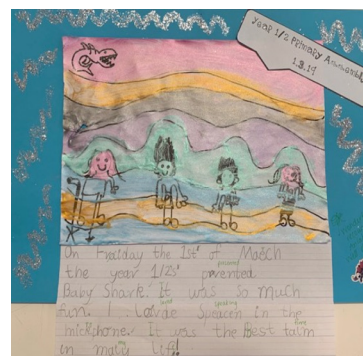 Year 1/2 Primary Assembly
1.3.19
On Friaday the 1st of Maoch
the year 1/2s' prevented
presented
Baby Shark. It was so much
fun. I loved
Speacen in the
speaking
mickphone. It was the Best talm
time
in maiy life!
my